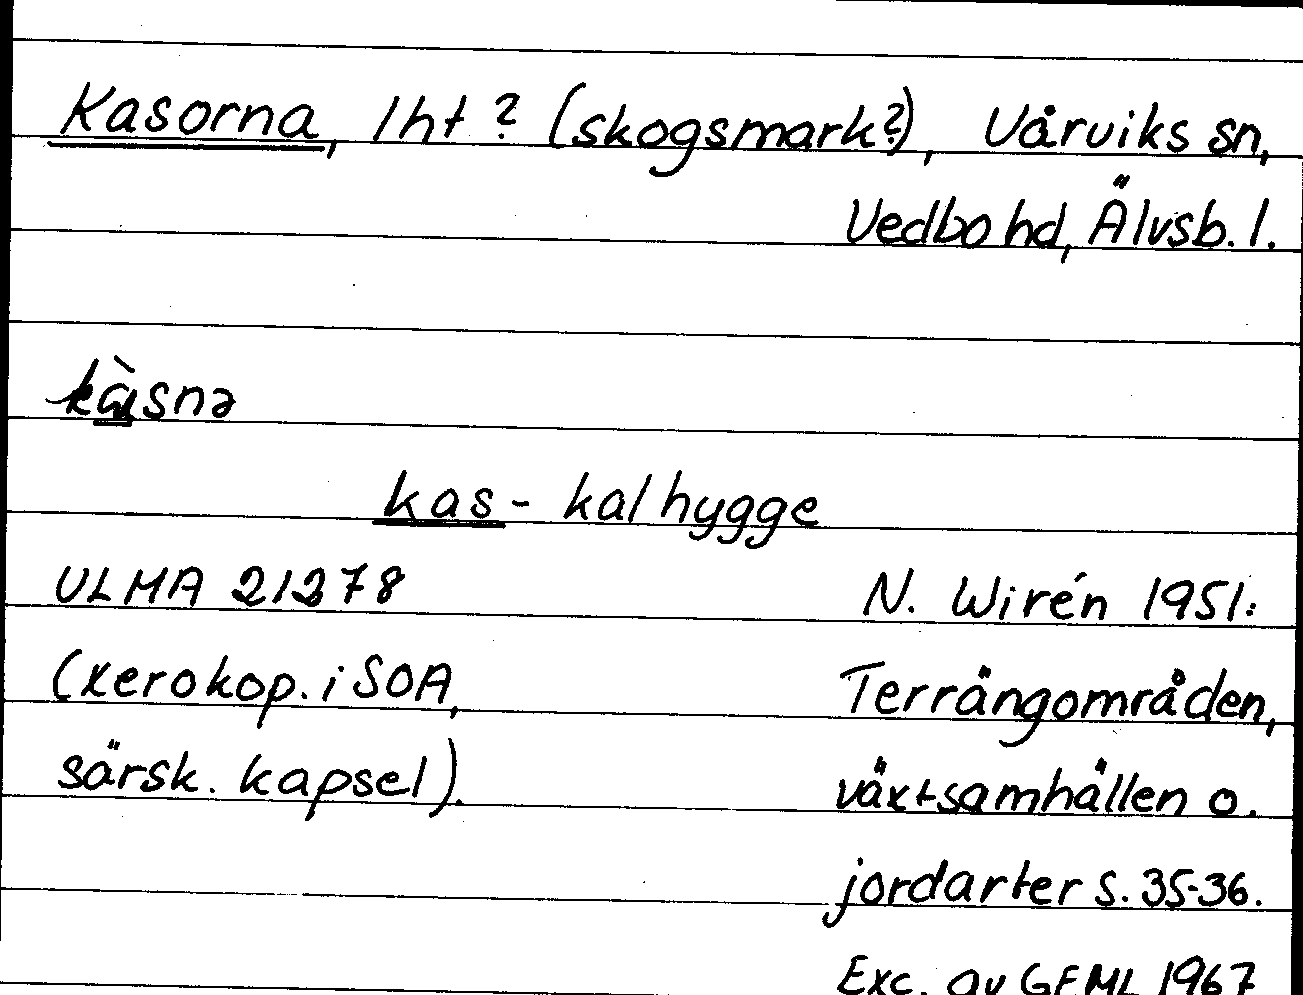 Kasorna, lht? (skogsmark?), Vårviks sn,
Vedbo hd, Älvsb. l.
kà̱snə
kas - kalhygge
ULMA 21278
N. Wirén 1951:
(xerokop. i SOA,
Terrängområden,
särsk. kapsel).
växtsamhällen o.
jordarter s. 35-36.
Exc. av GEML 1967